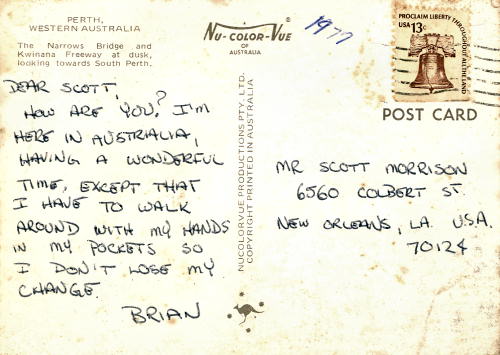 PERTH,
WESTERN AUSTRALIA
The Narrows Bridge and
Kwinana Freeway at dusk,
looking towards South Perth.
NU-COLOR-VUE ®
OF
AUSTRALIA
1977
PROCLAIM LIBERTY THROUGHOUT ALL THE LAND
USA 13c
POST CARD
DEAR SCOTT,
HOW ARE YOU? I'M
HERE IN AUSTRALIA,
HAVING A WONDERFUL
TIME, EXCEPT THAT
I HAVE TO WALK
AROUND WITH MY HANDS
IN MY POCKETS SO
I DON'T LOSE MY
CHANGE.
BRIAN
NUCOLORVUE PRODUCTIONS PTY. LTD.
COPYRIGHT PRINTED IN AUSTRALIA
MR SCOTT MORRISON
6560 COLBERT ST.
NEW ORLEANS, LA. U.S.A.
70124